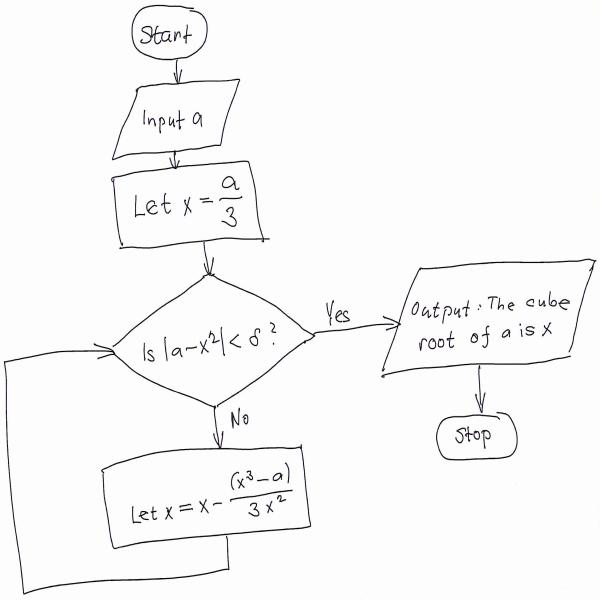 Start
Input a
Let x = a/3
Is |a-x²| < δ?
Yes
Output: The cube
root of a is x
Stop
No
Let x = x - (x³-a)/3x²